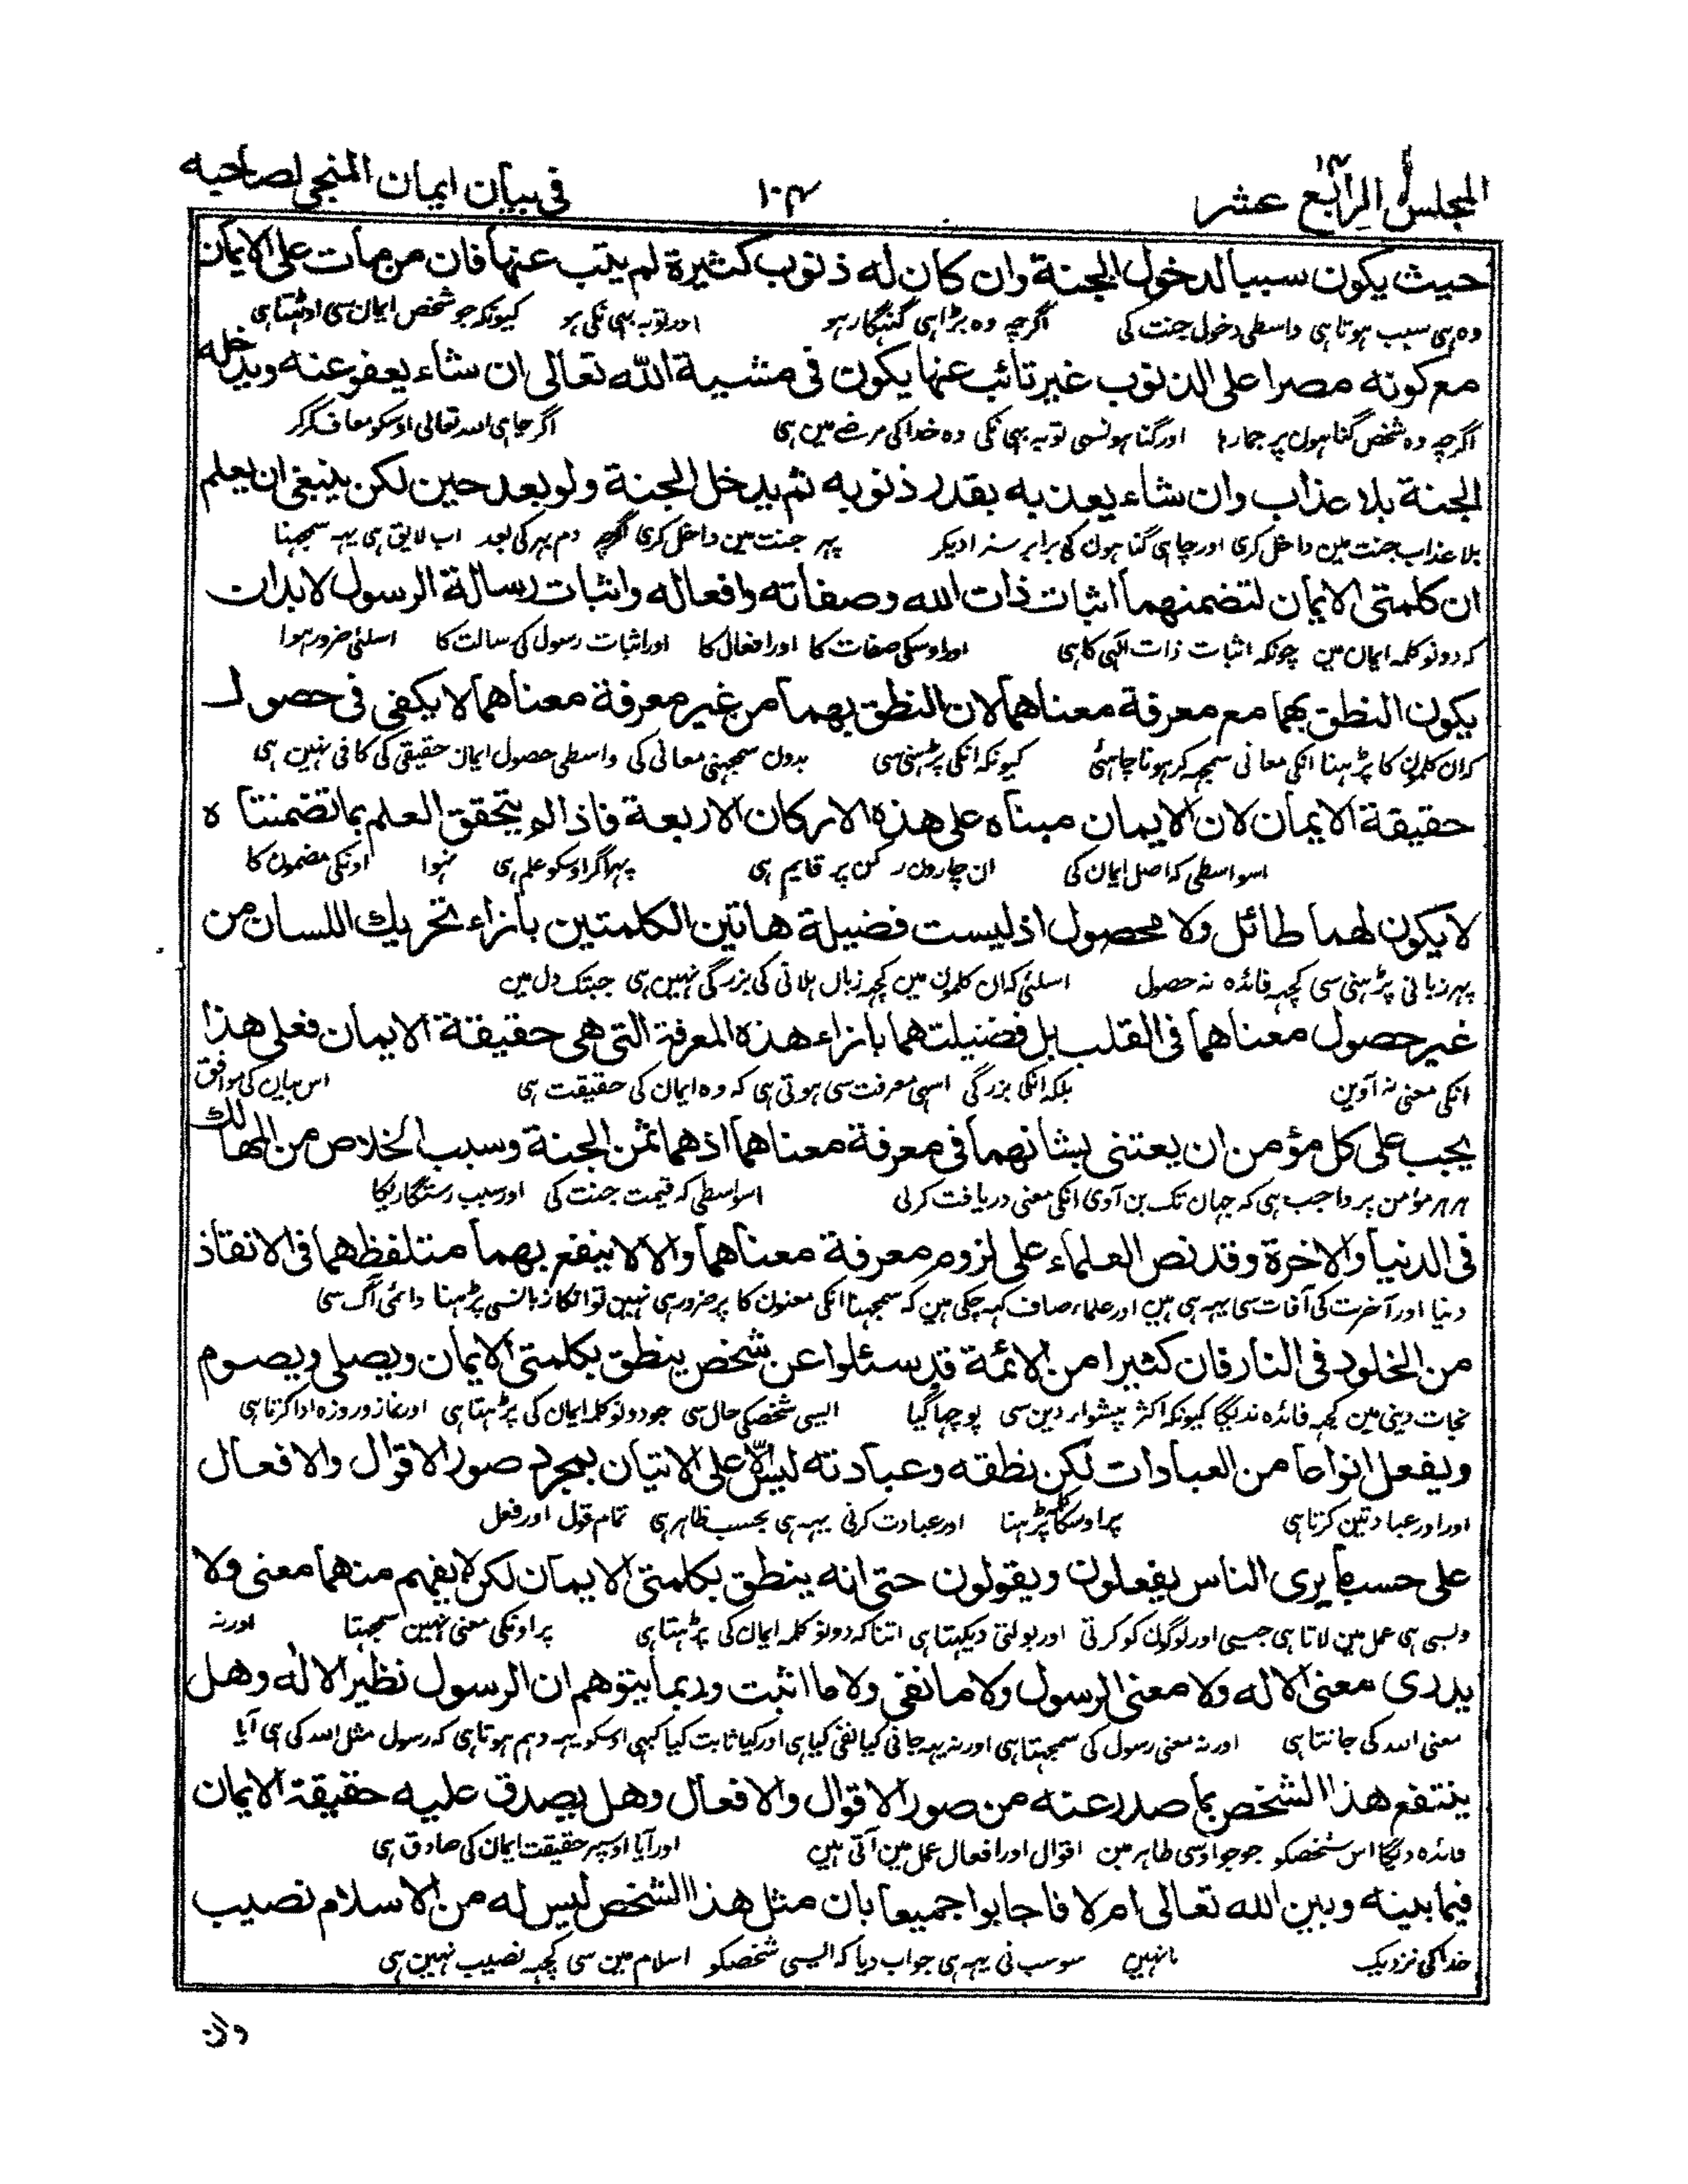 المجلس الرابع عشر ۱۴
۱۰۴
فی بیان ایمان المنجی لصاحبه
حیث یکون سببا لدخول الجنة وان کان له ذنوب کثیرة لم یتب عنها فان من مات علی الایمان
وہ ہی سبب ہوتا ہی واسطی دخول جنت کی اگرچہ وہ بڑا ہی گنہگار ہو اور توبہ بہی نکی ہو کیونکہ جو شخص ایمان سی اوٹہتا ہی
مع کونه مصرا علی الذنوب غیر تائب عنها یکون فی مشیة الله تعالی ان شاء یعفو عنه ویدخله
اگرچہ وہ شخص گناہوں پر جمارہا اور گناہونسی توبہ بہی نکی وہ خدا کی مرضے مین ہی اگر چاہی اللہ تعالی اوسکو معاف کر کر
الجنة بلا عذاب وان شاء یعذبه بقدر ذنوبه ثم یدخل الجنة ولو بعد حین لکن ینبغی ان یعلم
بلا عذاب جنت مین داخل کری اور چاہی گناہون کی برابر سزا دیکر پہر جنت مین داخل کری اگرچہ دم بہر کی بعد اب لایق ہی یہہ سمجہنا
ان کلمتی الایمان لتضمنهما اثبات ذات الله وصفاته وافعاله واثبات رسالة الرسول لابد ان
کہ دونو کلمہ ایمان مین چونکہ اثبات ذات الٰہی کا ہی اور اوسکی صفات کا اور افعال کا اور اثبات رسول کی رسالت کا اسلئی ضرور ہوا
یکون النطق بهما مع معرفة معناهما لان النطق بهما من غیر معرفة معناهما لا یکفی فی حصول
کہ ان کلمون کا پڑہنا انکی معانی سمجہہ کر ہونا چاہئی کیونکہ انکی پڑہنی سی بدون سمجہنی معانی کی واسطی حصول ایمان حقیقی کی کافی نہین ہی
حقیقة الایمان لان الایمان مبناه علی هذه الارکان الاربعة فاذا لم یتحقق العلم بما تضمنتاه
اسواسطی کہ اصل ایمان کی ان چارون رکن پر قایم ہی پہر اگر اوسکو علم ہی نہوا اونکی مضمون کا
لا یکون لهما طائل ولا محصول اذ لیست فضیلة هاتین الکلمتین بازاء تحریك اللسان من
پہر زبانی پڑہنی سی کچہہ فائدہ نہ حصول اسلئی کہ ان کلمون مین کچہہ زباں ہلانی کی بزرگی نہین ہی جبتک دل مین
غیر حصول معناهما فی القلب بل فضیلتهما بازاء هذه المعرفة التی هی حقیقة الایمان فعلی هذا
انکی معنی نہ آوین بلکہ انکی بزرگی اسہی معرفت سی ہوتی ہی کہ وہ ایمان کی حقیقت ہی اس بیان کی موافق
یجب علی کل مؤمن ان یعتنی بشانهما فی معرفة معناهما اذ هما ثمن الجنة وسبب الخلاص من المهالك
ہر ہر مؤمن پر واجب ہی کہ جہان تک بن آوی انکی معنی دریافت کرلی اسواسطی کہ قیمت جنت کی اور سبب رستگاریکا
فی الدنیا والاخرة وقد نص العلماء علی لزوم معرفة معناهما والا لا ینفع بهما متلفظهما فی الانقاذ
دنیا اور آخرت کی آفات سی یہہ ہی ہین اور علماء صاف کہہ چکی ہین کہ سمجہنا انکی معنون کا پر ضرور ہی نہین تو انکا زبانسی پڑہنا دائمی آگ سی
من الخلود فی النار فان کثیرا من الائمة قد سئلوا عن شخص ینطق بکلمتی الایمان ویصلی ویصوم
نجات دینی مین کچہہ فائدہ ندیگا کیونکہ اکثر پیشواء دین سی پوچہا گیا ایسی شخصکی حال سی جو دونو کلمہ ایمان کی پڑہتا ہی اور نماز و روزہ ادا کرتا ہی
ویفعل انواعا من العبادات لکن نطقه وعبادته لیس الا علی الاتیان بمجرد صور الاقوال والافعال
اور اور عبادتین کرتا ہی پر اوسکا پڑہنا اور عبادت کرنی یہہ ہی بحسب ظاہر ہی تمام قول اور فعل
علی حسب ما یری الناس یفعلون ویقولون حتی انه ینطق بکلمتی الایمان لکن لا یفهم منهما معنی ولا
ویسی ہی عمل مین لاتا ہی جیسی اور لوگون کو کرتی اور بولتی دیکہتا ہی اتنا کہ دونو کلمہ ایمان کی پڑہتا ہی پر اونکی معنی نہین سمجہتا اور نہ
یدری معنی الاله ولا معنی الرسول ولا ما نفی ولا ما اثبت وربما یتوهم ان الرسول نظیر الاله وهل
معنی اللہ کی جانتا ہی اور نہ معنی رسول کی سمجہتا ہی اور نہ یہہ جانی کیا نفی کیا ہی اور کیا ثابت کیا کبہی اوسکو یہہ وہم ہوتا ہی کہ رسول مثل اللہ کی ہی آیا
ینتفع هذا الشخص بما صدر عنه من صور الاقوال والافعال وهل یصدق علیه حقیقة الایمان
فائدہ دیگا اس شخصکو جو جو اوسی ظاہر مین اقوال اور افعال عمل مین آتی ہین اور آیا اوسپر حقیقت ایمان کی صادق ہی
فیما بینه وبین الله تعالی ام لا فاجابوا جمیعا بان مثل هذا الشخص لیس له من الاسلام نصیب
خدا کی نزدیک یا نہین سو سب نی یہہ ہی جواب دیا کہ ایسی شخصکو اسلام مین سی کچہہ نصیب نہین ہی
وان